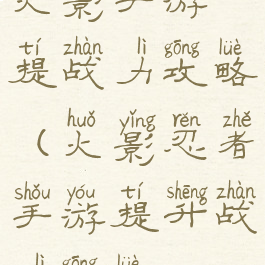 火影手游
tí zhàn lì gōng lüè
提战力攻略
huǒ yǐng rěn zhě
（火影忍者
shǒu yóu tí shēng zhàn
手游提升战
lì gōng lüè